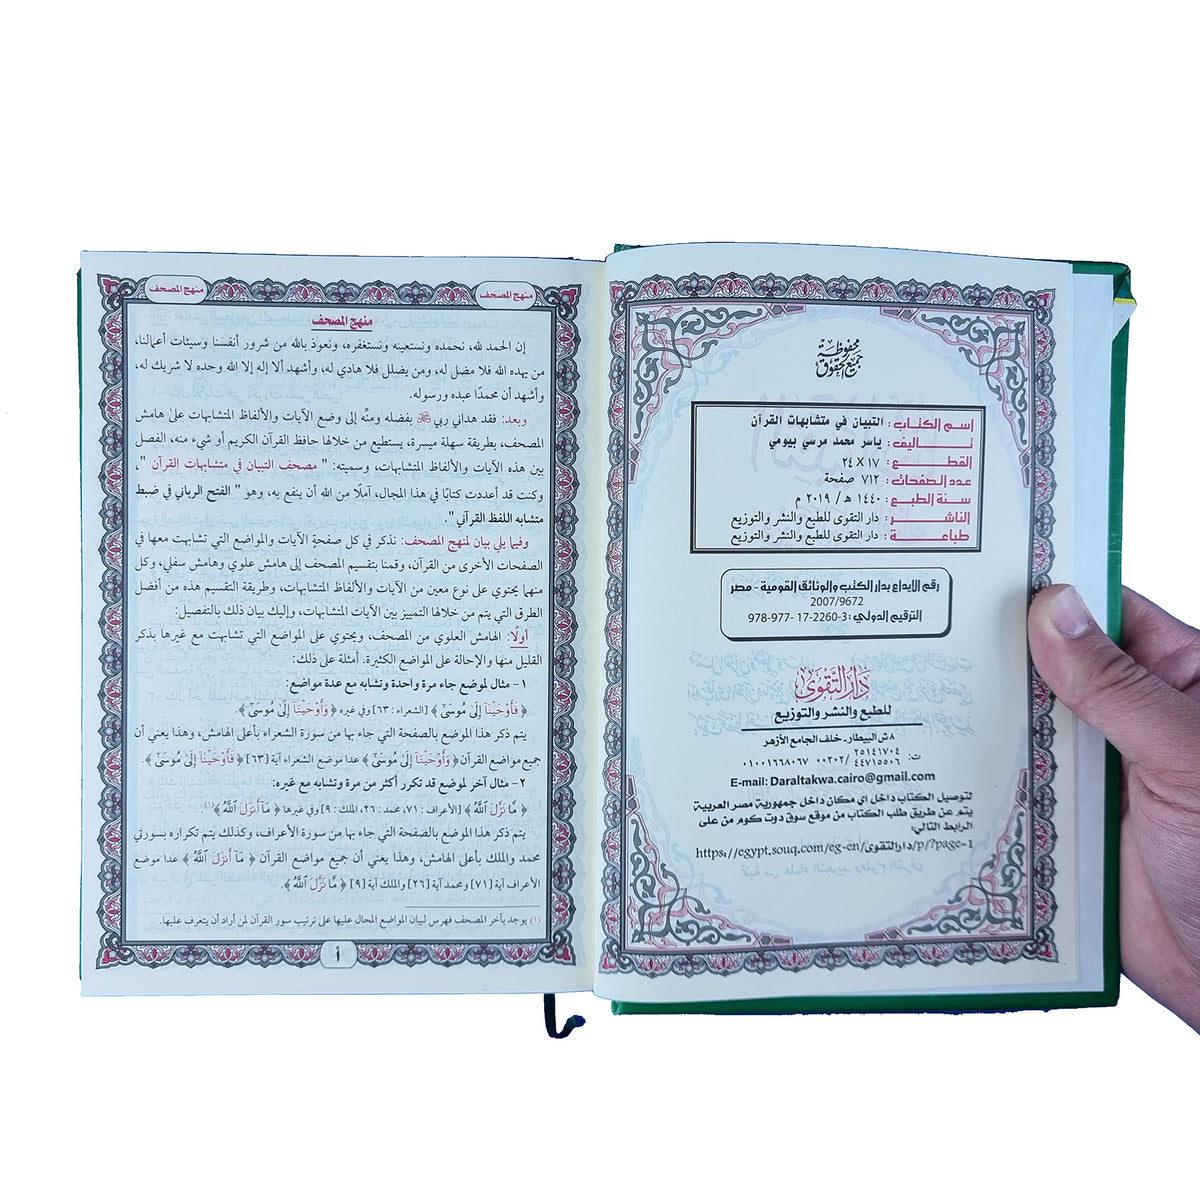 جميع الحقوق
محفوظة
إسم الكتاب : التبيان في متشابهات القرآن
تأليف : ياسر محمد مرسي بيومي
القطع : ١٧ X ٢٤
عدد الصفحات : ٧١٢ صفحة
سنة الطبع : ١٤٤٠ هـ / ٢٠١٩ م
الناشر : دار التقوى للطبع والنشر والتوزيع
طباعة : دار التقوى للطبع والنشر والتوزيع
رقم الإيداع بدار الكتب والوثائق القومية - مصر
2007/9672
الترقيم الدولي : 978-977- 17-2260-3
دار التقوى
للطبع والنشر والتوزيع
٨ ش البيطار - خلف الجامع الأزهر
ت: ٢٥١٤١٧٠٤
٤٤٧١٥٥٠٦ /٠٠٢٠٢ ٠١٠٠١٦٦٨٠٦٧
E-mail: Daraltakwa.cairo@gmail.com
لتوصيل الكتاب داخل اي مكان داخل جمهورية مصر العربية
يتم عن طريق طلب الكتاب من موقع سوق دوت كوم من على
الرابط التالي:
https://egypt.souq.com/eg-en/دار-التقوى/p/?page=1
منهج المصحف
منهج المصحف
منهج المصحف
إن الحمد لله، نحمده ونستعينه ونستغفره، ونعوذ بالله من شرور أنفسنا وسيئات أعمالنا،
من يهده الله فلا مضل له، ومن يضلل فلا هادي له، وأشهد ألا إله إلا الله وحده لا شريك له،
وأشهد أن محمدًا عبده ورسوله.
وبعد: فقد هداني ربي ﷻ بفضله ومنّه إلى وضع الآيات والألفاظ المتشابهات على هامش
المصحف، بطريقة سهلة ميسرة، يستطيع من خلالها حافظ القرآن الكريم أو شيء منه، الفصل
بين هذه الآيات والألفاظ المتشابهات، وسميته: " مصحف التبيان في متشابهات القرآن "،
وكنت قد أعددت كتابًا في هذا المجال، آملًا من الله أن ينفع به، وهو " الفتح الرباني في ضبط
متشابه اللفظ القرآني ".
وفيما يلي بيان لمنهج المصحف: نذكر في كل صفحة الآيات والمواضع التي تشابهت معها في
الصفحات الأخرى من القرآن، وقمنا بتقسيم المصحف إلى هامش علوي وهامش سفلي، وكل
منهما يحتوي على نوع معين من الآيات والألفاظ المتشابهات، وطريقة التقسيم هذه من أفضل
الطرق التي يتم من خلالها التمييز بين الآيات المتشابهات، وإليك بيان ذلك بالتفصيل:
أولًا: الهامش العلوي من المصحف، ويحتوي على المواضع التي تشابهت مع غيرها بذكر
القليل منها والإحالة على المواضع الكثيرة. أمثلة على ذلك:
١ - مثال لموضع جاء مرة واحدة وتشابه مع عدة مواضع:
﴿ فَأَوْحَيْنَآ إِلَىٰ مُوسَىٰٓ ﴾ [الشعراء : ٦٣] وفي غيره ﴿ وَأَوْحَيْنَآ إِلَىٰ مُوسَىٰٓ ﴾.
يتم ذكر هذا الموضع بالصفحة التي جاء بها من سورة الشعراء بأعلى الهامش، وهذا يعني أن
جميع مواضع القرآن ﴿ وَأَوْحَيْنَآ إِلَىٰ مُوسَىٰٓ ﴾ عدا موضع الشعراء آية [٦٣] ﴿ فَأَوْحَيْنَآ إِلَىٰ مُوسَىٰٓ ﴾.
٢ - مثال آخر لموضع قد تكرر أكثر من مرة وتشابه مع غيره:
﴿ مَّا نَزَّلَ ٱللَّهُ ﴾ [الأعراف : ٧١، محمد : ٢٦، الملك : ٩] وفي غيرها ﴿ مَآ أَنزَلَ ٱللَّهُ ﴾ (١)
يتم ذكر هذا الموضع بالصفحة التي جاء بها من سورة الأعراف، وكذلك يتم تكراره بسورتي
محمد والملك بأعلى الهامش، وهذا يعني أن جميع مواضع القرآن ﴿ مَآ أَنزَلَ ٱللَّهُ ﴾ عدا موضع
الأعراف آية [٧١] ومحمد آية [٢٦] والملك آية [٩] ﴿ مَّا نَزَّلَ ٱللَّهُ ﴾.
(١) يوجد بآخر المصحف فهرس لبيان المواضع المحال عليها على ترتيب سور القرآن لمن أراد أن يتعرف عليها.
أ